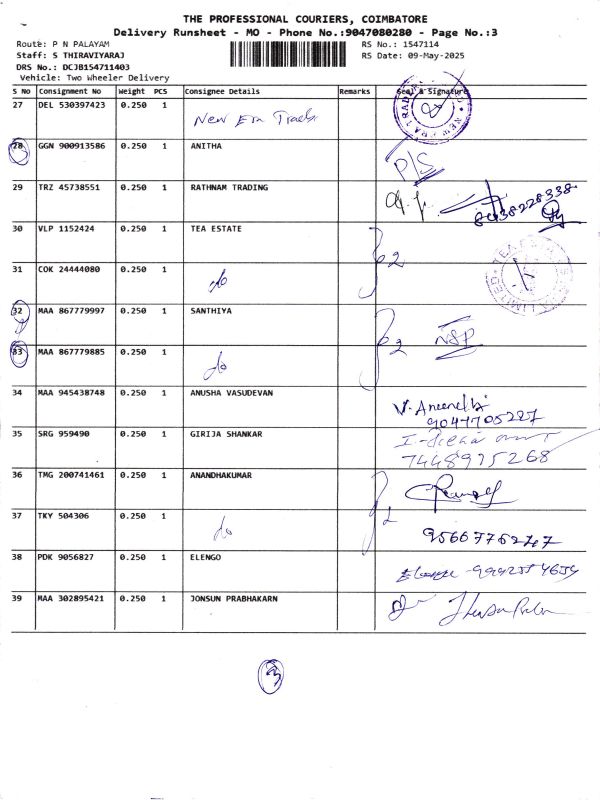 THE PROFESSIONAL COURIERS, COIMBATORE
Delivery Runsheet - MO - Phone No.:9047080280 - Page No.:3
Route: P N PALAYAM RS No.: 1547114
Staff: S THIRAVIYARAJ RS Date: 09-May-2025
DRS No.: DCJB154711403
Vehicle: Two Wheeler Delivery
S No Consignment No Weight PCS Consignee Details Remarks Seal & Signature
27 DEL 530397423 0.250 1 New Era
28 GGN 900913586 0.250 1 ANITHA P/S
29 TRZ 45738551 0.250 1 RATHNAM TRADING
30 VLP 1152424 0.250 1 TEA ESTATE 2
31 COK 24444080 0.250 1 do
32 MAA 867779997 0.250 1 SANTHIYA 2 NSP
33 MAA 867779885 0.250 1 do
34 MAA 945438748 0.250 1 ANUSHA VASUDEVAN
9047705227
35 SRG 959490 0.250 1 GIRIJA SHANKAR
7448975268
36 TMG 200741461 0.250 1 ANANDHAKUMAR 2
37 TKY 504306 0.250 1 do 9566776247
38 PDK 9056827 0.250 1 ELENGO
39 MAA 302895421 0.250 1 JONSUN PRABHAKARN
3